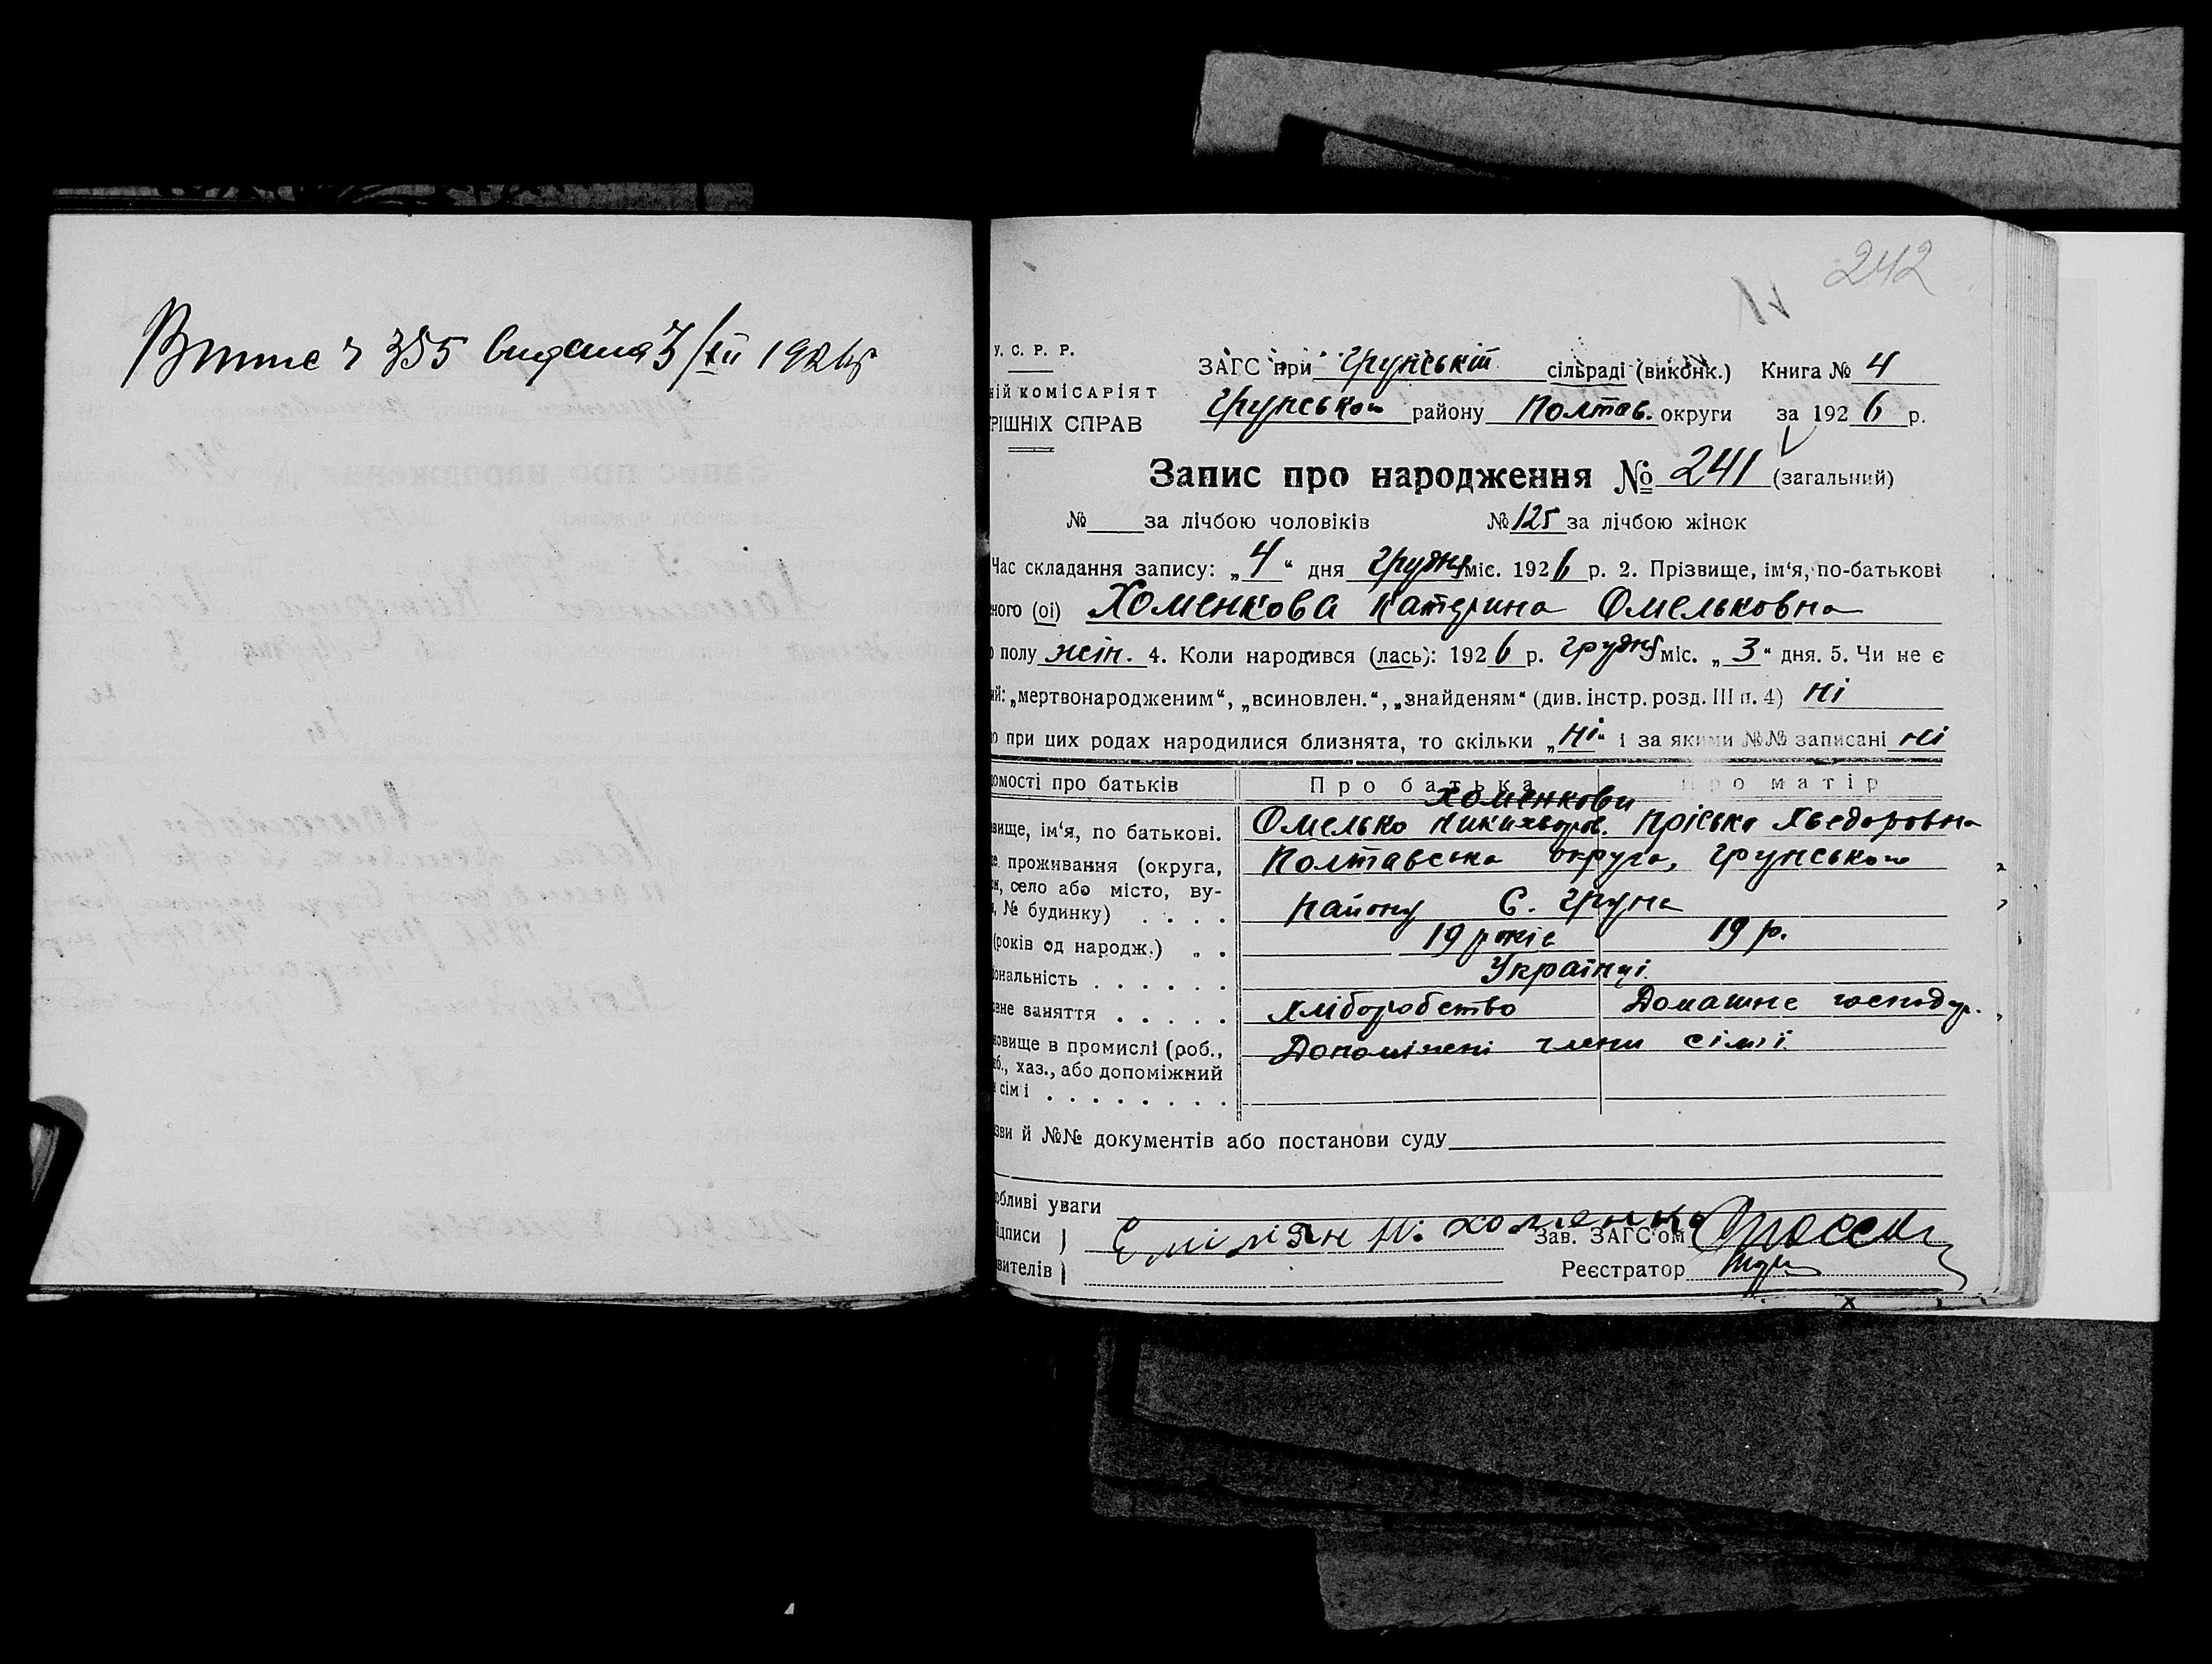 242
355 видана 3/XII 192
У. С. Р. Р.
ЗАГС при Грунській сільраді (виконк.) Книга № 4
КОМІСАРІЯТ
Грунського району Полтав. округи за 1926 р.
СПРАВ
Запис про народження № 241 (загальний)
№ за лічбою чоловіків № 125 за лічбою жінок
Час складання запису: „4“ дня грудня міс. 1926 р. 2. Прізвище, ім‘я, по-батькові
ного (ої) Хоменкова Катерина Омельковна
полу жін. 4. Коли народився (лась): 1926 р. грудня міс. „3“ дня. 5. Чи не є
ий: „мертвонародженим“, „всиновлен.“, „знайденям“ (див. інстр. розд. III п. 4) ні
о при цих родах народилися близнята, то скільки „ні“ і за якими №№ записані ні
омості про батьків Про батька Про матір
Хоменкови
вище, ім‘я, по батькові. Омелько Никихворов. Пріська Хведоровна
проживання (округа, Полтавська округа, Грунського
н, село або місто, ву-
№ будинку) . . . . району С. Грунь
(років од народж.) . . 19 років 19 р.
ональність . . . . . . Українці
ене заняття . . . . . Хліборобство Домашнє господар.
овище в промислі (роб., Допоміжні члени сімї
об., хаз., або допоміжний
сімі . . . . . . . .
зви й №№ документів або постанови суду
обливі уваги
ідписи Еміліян Н. Хоменко Зав. ЗАГС‘ом
вителів Реєстратор